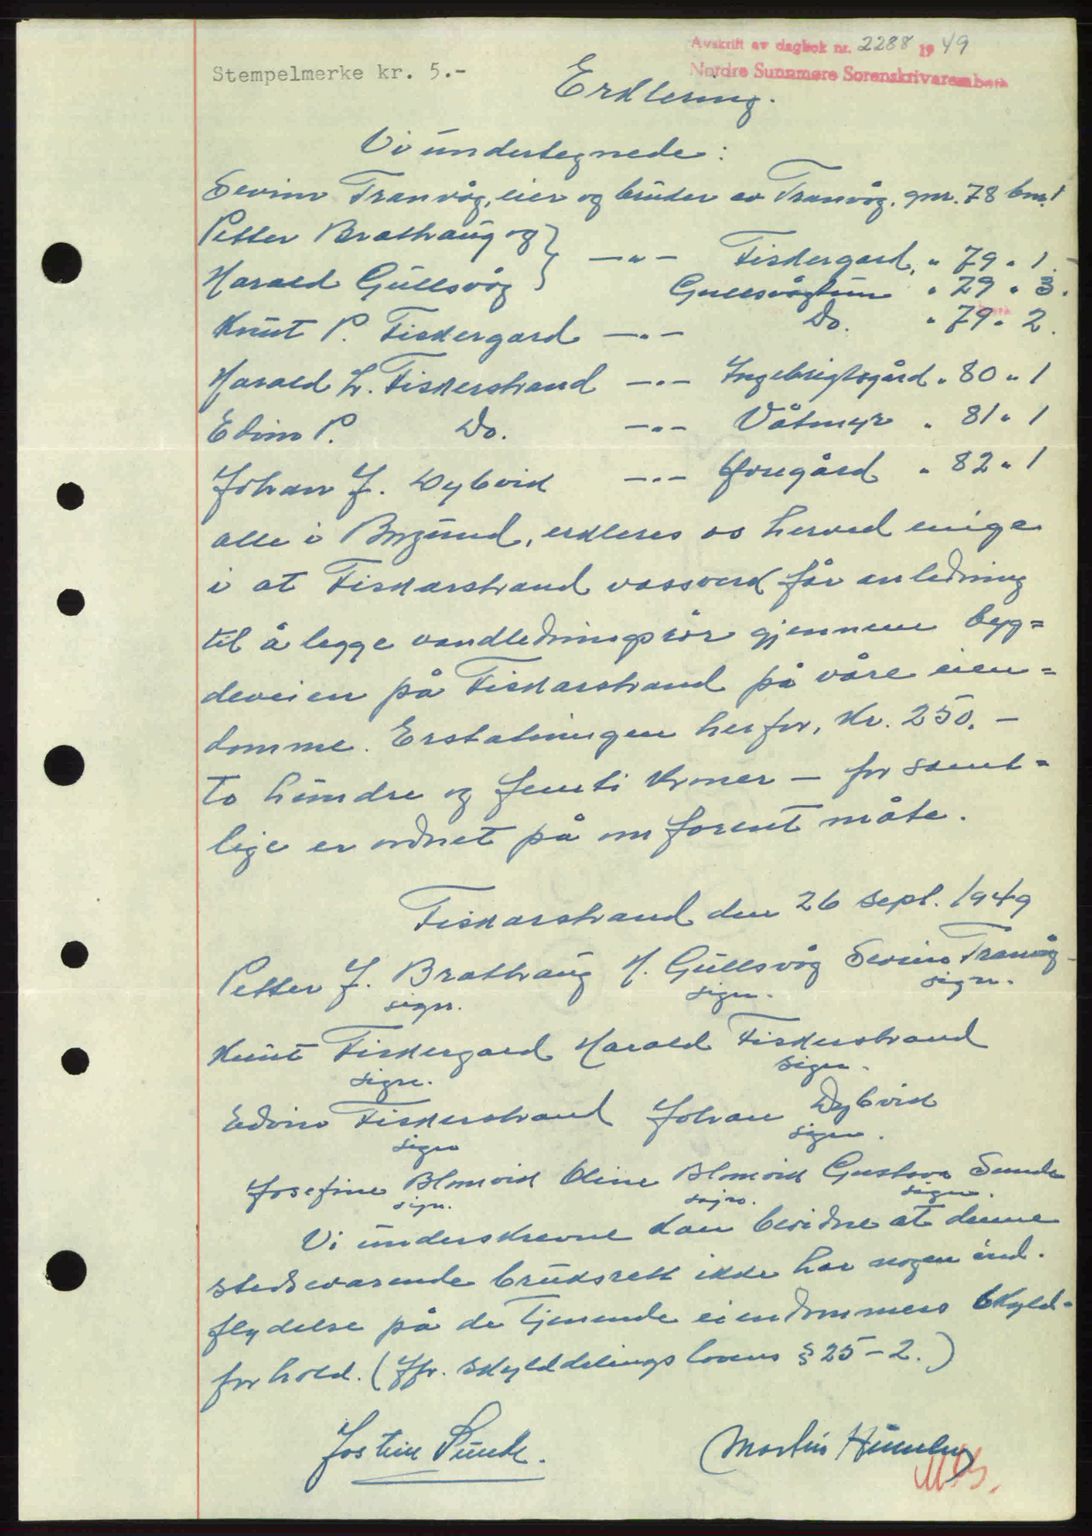 Avskrift av dagbok nr. 2288 1949
Nordre Sunnmøre Sorenskrivarembete
Stempelmerke kr. 5.-
Erklering.
Vi undertegnede:
Sevrin Tranvåg, eier og bruker av Tranvåg, gnr. 78 bnr. 1
Petter Brathaug og } —"— Fiskergard, " 79 " 1.
Harald Gullsvåg } Gullsvågtun " 79 " 3.
Knut P. Fiskergard —"— Do. " 79 " 2.
Harald L. Fiskerstrand —"— Ingebrigtsgård " 80 " 1
Edvin P. Do. —"— Våtmyr " 81 " 1
Johan J. Dybvik —"— Øvregård " 82 " 1
alle i Borgund, erkleres os herved enige
i at Fiskarstrand vassverk får anledning
til å legge vandledningsrör gjennem byg=
deveien på Fiskarstrand på våre eien=
domme. Erstatningen herfor, kr. 250.-
to hundre og femti kroner - for samt=
lige er ordnet på omforent måte.
Fiskarstrand den 26 sept. 1949
Petter J. Brathaug H. Gullsvåg Sevrin Tranvåg
sign. sign. sign.
Knut Fiskergard Harald Fiskerstrand
sign. sign.
Edvin Fiskerstrand Johan Dybvik
sign sign.
Josefine Blomvik Oline Blomvik Gustava Sunde
sign. sign. sign.
Vi underskrevne kan bevidne at denne
stedsevarende bruksrett ikke har nogen ind.
flydelse på de tjenende eiendommers skyld-
forhold. (Jfr. skylddelingslovens § 25-2.)
Jostein Sunde. Martin